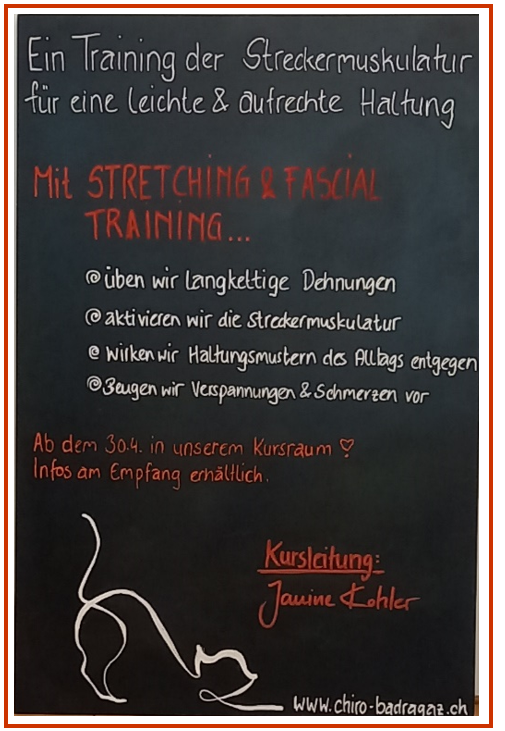 Ein Training der Streckermuskulatur
für eine leichte & aufrechte Haltung
Mit STRETCHING & FASCIAL
TRAINING...
üben wir langkettige Dehnungen
aktivieren wir die Streckermuskulatur
wirken wir Haltungsmustern des Alltags entgegen
Beugen wir Verspannungen & Schmerzen vor
Ab dem 30.4. in unserem Kursraum ♡
Infos am Empfang erhältlich.
Kursleitung:
Janine Kohler
www.chiro-badragaz.ch